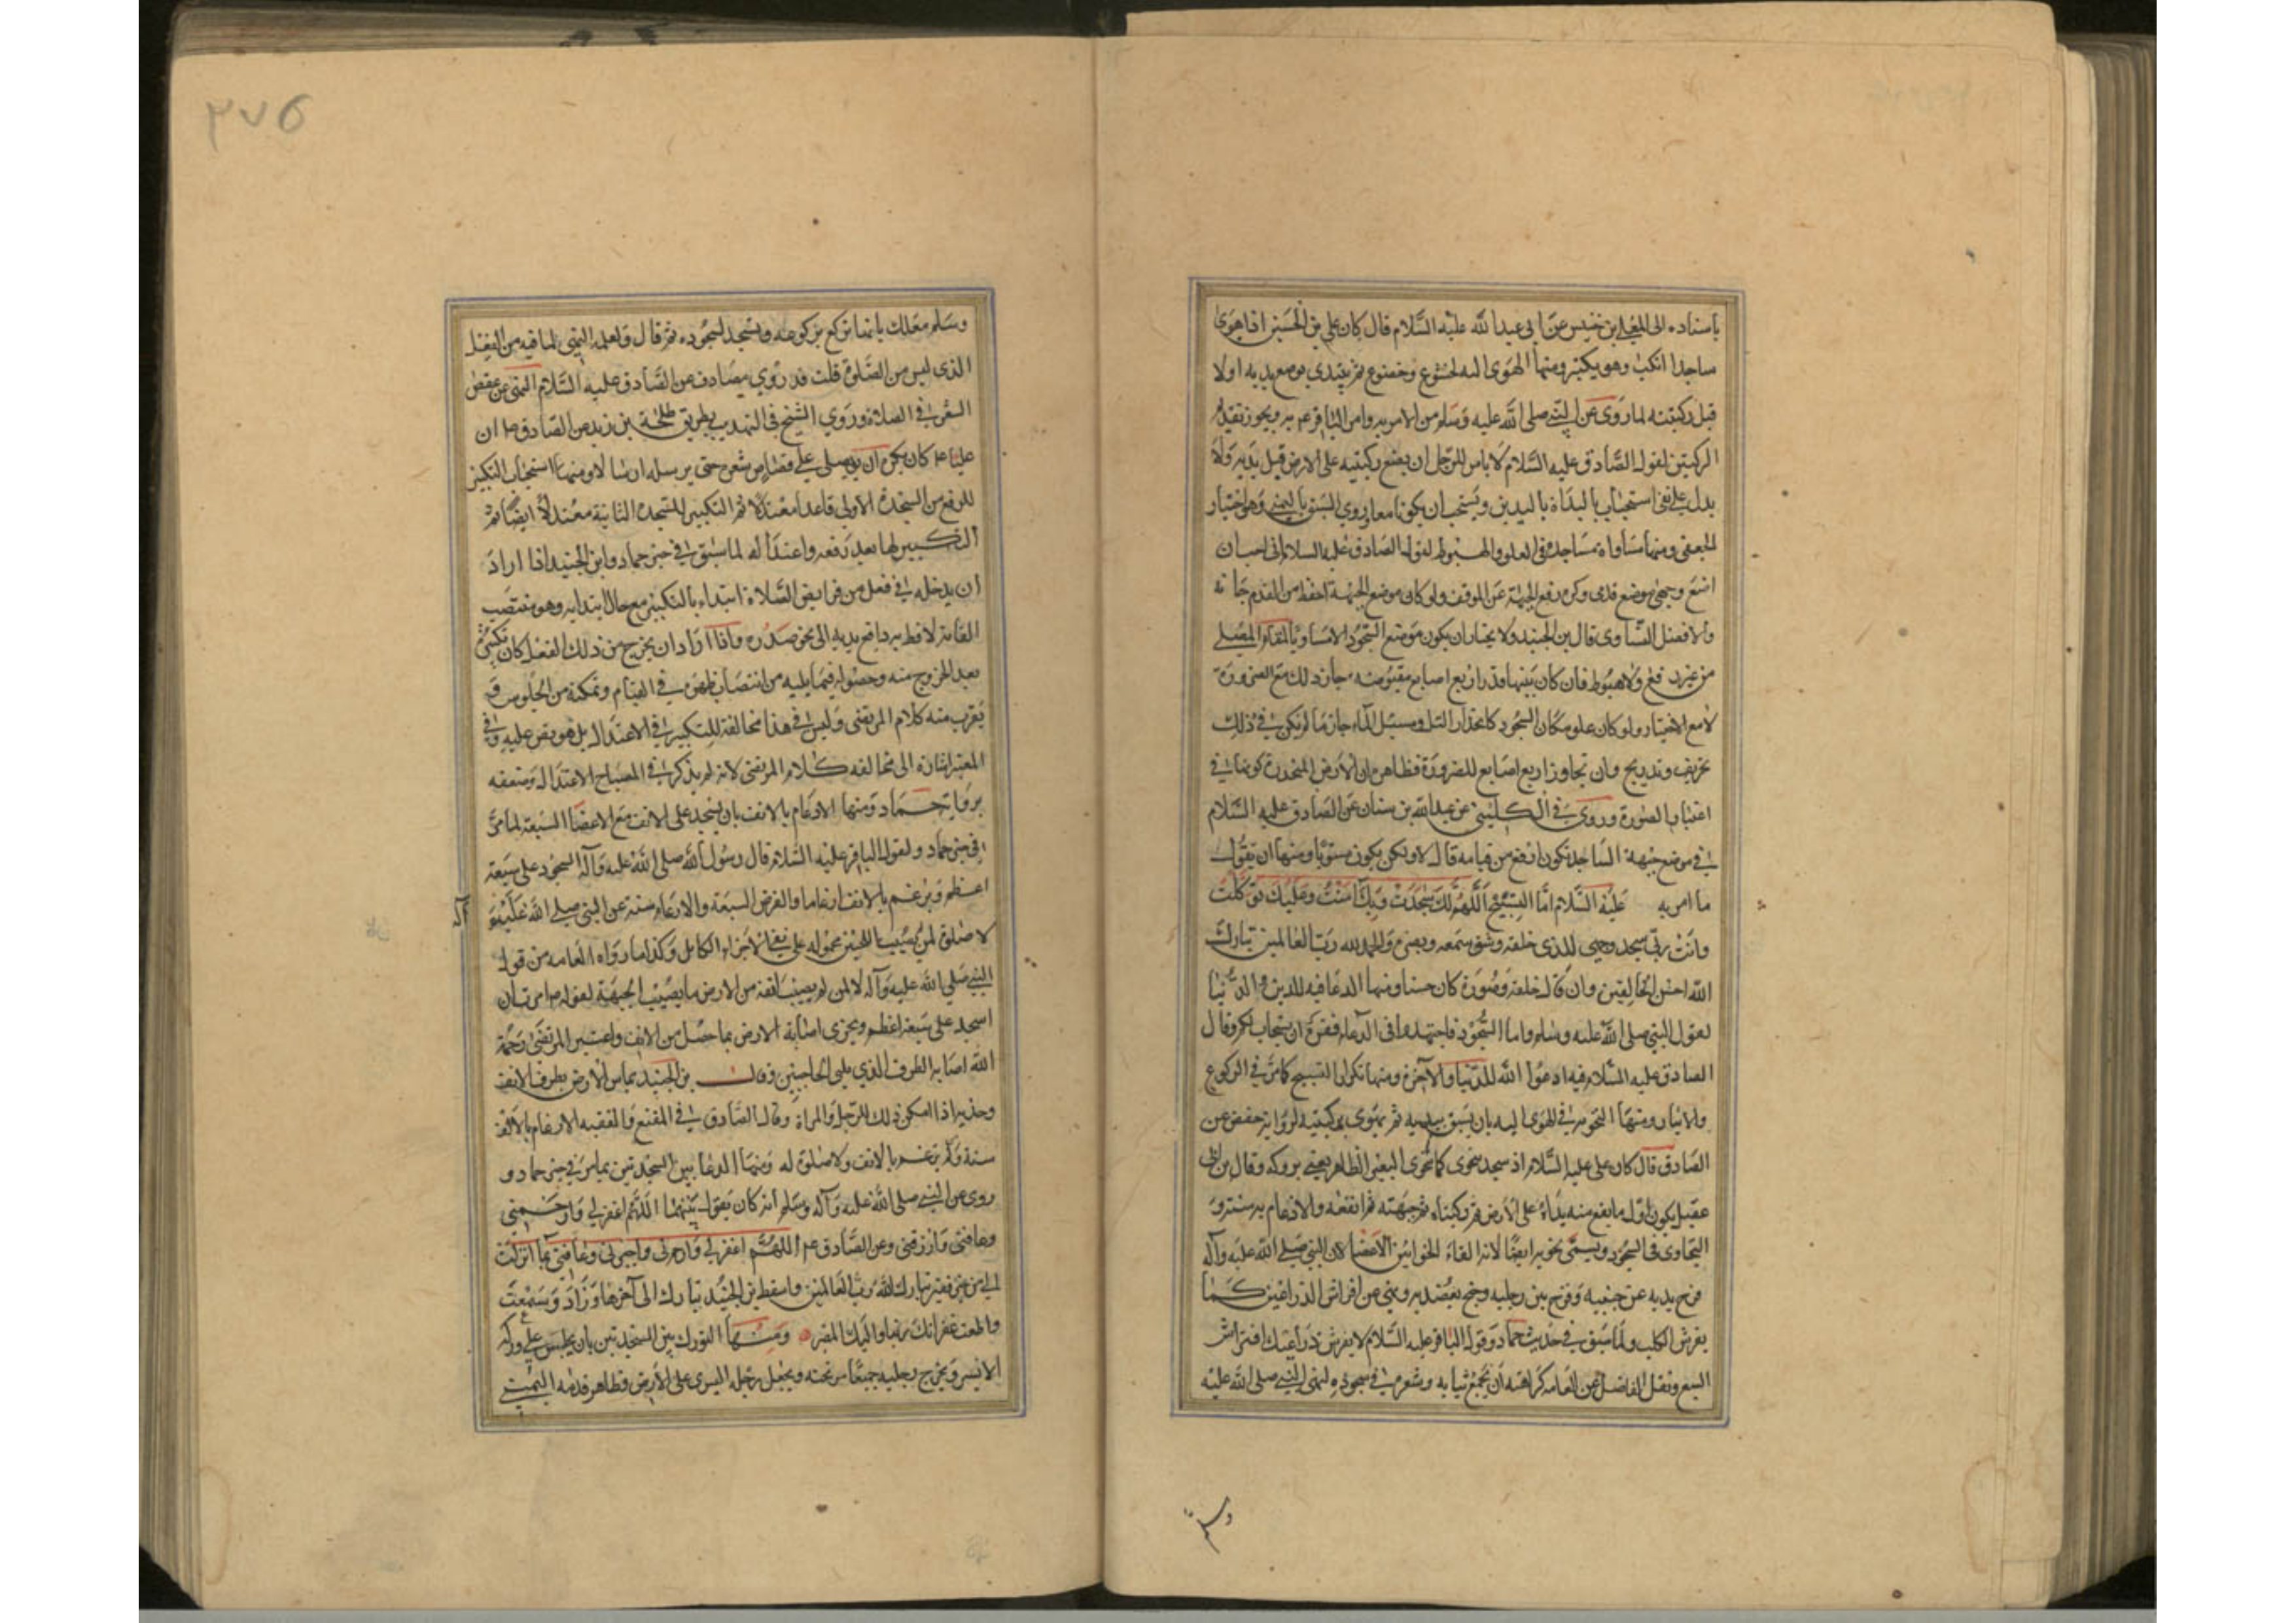 باسناده الى المعلى بن خنيس عن ابى عبدالله عليه السلام قال كان على بن الحسين اذا هوى
ساجدا انكب وهو يكبر ومنها الهوى اليه بخشوع وخضوع ثم يبتدي بوضع يديه اولا
قبل ركبتيه لما روى عن النبي صلى الله عليه وسلم من الامر به وامر الباقر عم به ويجوز تقديم
الركبتين لقول الصادق عليه السلام لا باس للرجل ان يضع ركبتيه على الارض قبل يديه ولا
يدل على نفى استحباب البداة باليدين ويستحب ان يكونا معا وروي السبق باليمنى وهو اختيار
الجعفى ومنها مساواة مساجده فى العلو والهبوط لقول الصادق عليه السلام انى احب ان
اضع وجهى موضع قدمى وكره رفع الجبهة عن الموقف ولو كان موضع الجبهة اخفض من القدم جاز
والافضل التساوى قال بن الجنيد ولا يختار ان يكون موضع السجود الا مساويا لمقام المصلى
من غير رفع ولا هبوط فان كان بينهما قدر اربع اصابع مقبوضة جاز ذلك مع الضرورة
لا مع الاختيار ولو كان علو مكان السجود كانحدار التل ومسيل الماء جاز ما لم يكن في ذلك
تحريف وتدريج وان تجاوز اربع اصابع للضرورة فظاهره ان الارض المنحدرة كونها في
اعتبار الصورة وروى في الكلينى عن عبدالله بن سنان عن الصادق عليه السلام
في موضع جبهة الساجد تكون ارفع من قيامه قال لا ولكن يكون مستويا ومنها ان يقول
ما امر به عليه السلام اما التسبيح اللهم لك سجدت وبك امنت وعليك توكلت
وانت ربى سجد وجهى للذى خلقه وشق سمعه وبصره والحمد لله رب العالمين تبارك
الله احسن الخالقين وان قال خلقه وصوره كان حسنا ومنها الدعا فيه للدين والدنيا
لقول النبي صلى الله عليه وسلم واما السجود فاجتهدوا فى الدعاء فقمن ان يستجاب لكم وقال
الصادق عليه السلام فيه ادعوا الله للدنيا والآخرة ومنها تكرار التسبيح كما مر في الركوع
ومنها التخوية في الهوى اليه بان يسبق بيديه ثم يهوى بركبتيه لرواية حفص عن
الصادق قال كان على عليه السلام اذ سجد يتخوى كما يتخوى البعير الضامر يعنى بروكه وقال بن ابى
عقيل يكون اول ما يقع منه يداه على الارض ثم ركبتاه ثم جبهته ثم انفه والارغام به سنة و
التجاوى فى السجود ويسمى تخويه ايضا لانه القاء الخوا بين الاعضا لان النبي صلى الله عليه وآله
فرج يديه عن جنبيه وفرج بين رجليه وجنح بعضديه ونهى عن افراش الذراعين كما
يفرش الكلب ولما سبق في حديث حماد وقول الباقر عليه السلام لا يفرش ذراعيك افتراش
السبع ونقل الفاضل عن العامه كراهة ان يجمع ثيابه وشعره في سجوده لنهى النبي صلى الله عليه
وسلم
٣٧٥
وسلم معللا بانها تركع بركوعه وتسجد لسجوده ثم قال ولعله النهى لما فيه من الفعل
الذى ليس من الصلوة قلت قد روي مصادف عن الصادق عليه السلام النهى عن عقص
الشعر في الصلاة وروي الشيخ فى التهذيب بطريق طلحة بن زيد عن الصادق ان
عليا عم كان يكره ان يصلى على قصاص شعره حتى يرسله ارسالا ومنها استحباب التكبير
للرفع من السجدة الاولى قاعدا معتدلا ثم التكبير للسجدة الثانية معتدلا ايضا ثم
التكبير لها بعد رفعه واعتداله لما سبق في خبر حماد وابن الجنيد اذا اراد
ان يدخل في فعل من فرايض الصلاة ابتداء بالتكبير مع حال ابتدايه وهو منتصب
القامة لافظ به رافع يديه الى نحو صدره واذا اراد ان يخرج من ذلك الفعل كان تكبيره
بعد الخروج منه وحصوله فيما يليه من انتصاب ظهره في القيام وتمكنه من الجلوس و
يقرب منه كلام المرتضى وليس في هذا مخالفة للتكبير في الاعتدال بل هو نص عليه وفى
المعتبر اشارة الى مخالفة كلام المرتضى لانه لم يذكر في المصباح الاعتدال وضعفه
برواية حماد ومنها الارغام بالانف بان يسجد على الانف مع الاعضا السبعة لما مر
في خبر حماد ولقول الباقر عليه السلام قال رسول الله صلى الله عليه وآله السجود على سبعة
اعظم وترغم بالانف ارغاما والفرض السبعة والارغام سنة عن النبي صلى الله عليه و
آله
لا صلوة لمن يصيب الجبين محموله على نفى الاجزاء الكامل وكذا ما رواه العامه من قول
النبي صلى الله عليه وآله لا لمن لم يصب انفه من الارض ما يصيب الجبهة لقوله امرت ان
اسجد على سبعة اعظم ويجزى اصابة الارض بما حصل من الانف واعتبر المرتضى رحمة
الله اصابه الطرف الذي يلى الحاجبين وقال بن الجنيد يماس الارض بطرف الانف
وحذيه اذا امكن ذلك للرجل والمراة وقال الصادق في المقنع والفقيه الارغام بالانف
سنة ولم يرغم بالانف ولا صلوة له ومنها الدعا بين السجدتين بما مر في خبر حماد و
روى عن النبي صلى الله عليه وآله وسلم انه كان يقول بينهما اللهم اغفرلي وارحمنى
وعافنى وارزقنى وعن الصادق عم اللهم اغفرلي وارحمنى واجبرنى وعافنى لما انزلت
الى من خير فقير تبارك الله رب العالمين واسقط بن الجنيد تبارك الى آخرها وزاد وسمعت
واطعت غفرانك ربنا واليك المصير ومنها التورك بين السجدتين بان يجلس على وركه
الايسر ويخرج رجليه جميعا من تحته ويجعل رجله اليسرى على الارض وظاهر قدمه اليمنى